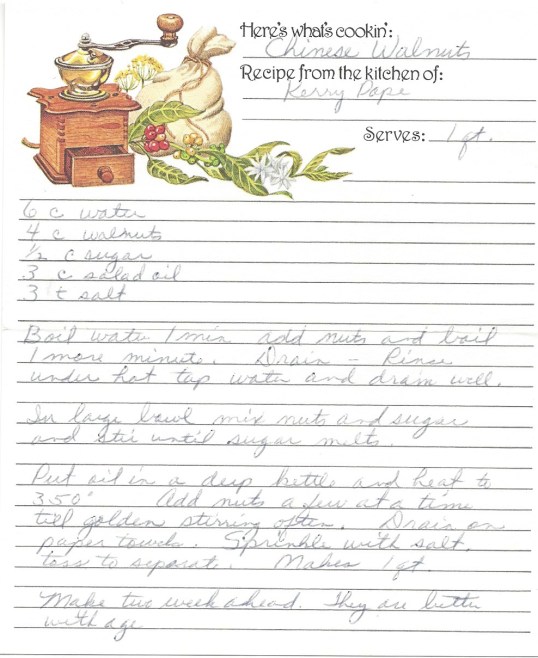 Here's what's cookin':
Chinese Walnuts
Recipe from the kitchen of:
Kerry Pope
Serves: 1 qt.
6 c water
4 c walnuts
1/2 c sugar
3 c salad oil
3 t salt
Boil water 1 min add nuts and boil
1 more minute. Drain - Rinse
under hot tap water and drain well.
In large bowl mix nuts and sugar
and stir until sugar melts.
Put oil in a deep kettle and heat to
350° Add nuts a few at a time
till golden stirring often. Drain on
paper towels. Sprinkle with salt.
toss to separate. Makes 1 qt.
Make two week ahead. They are better
with age